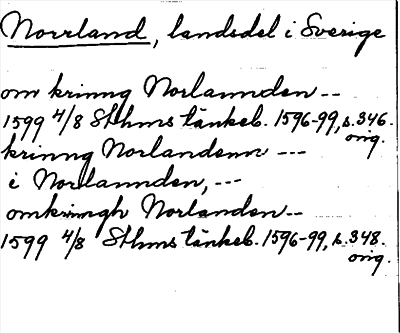 Norrland, landsdel i Sverige
om krinng Norlannden --
1599 4/8 Sthms tänkeb. 1596-99, s. 346.
orig.
kring Norlandenn ---
i Norlannden, ---
omkringh Norlanden --
1599 4/8 Sthms tänkeb. 1596-99, s. 348.
orig.